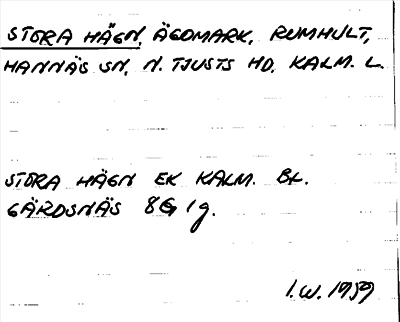 STORA HÄGN, ÄGOMARK, RUMHULT,
HANNÄS SN, N. TJUSTS HD, KALM. L.
STORA HÄGN EK KALM. BL.
GÄRDSNÄS 8G 1g.
I.W. 1959